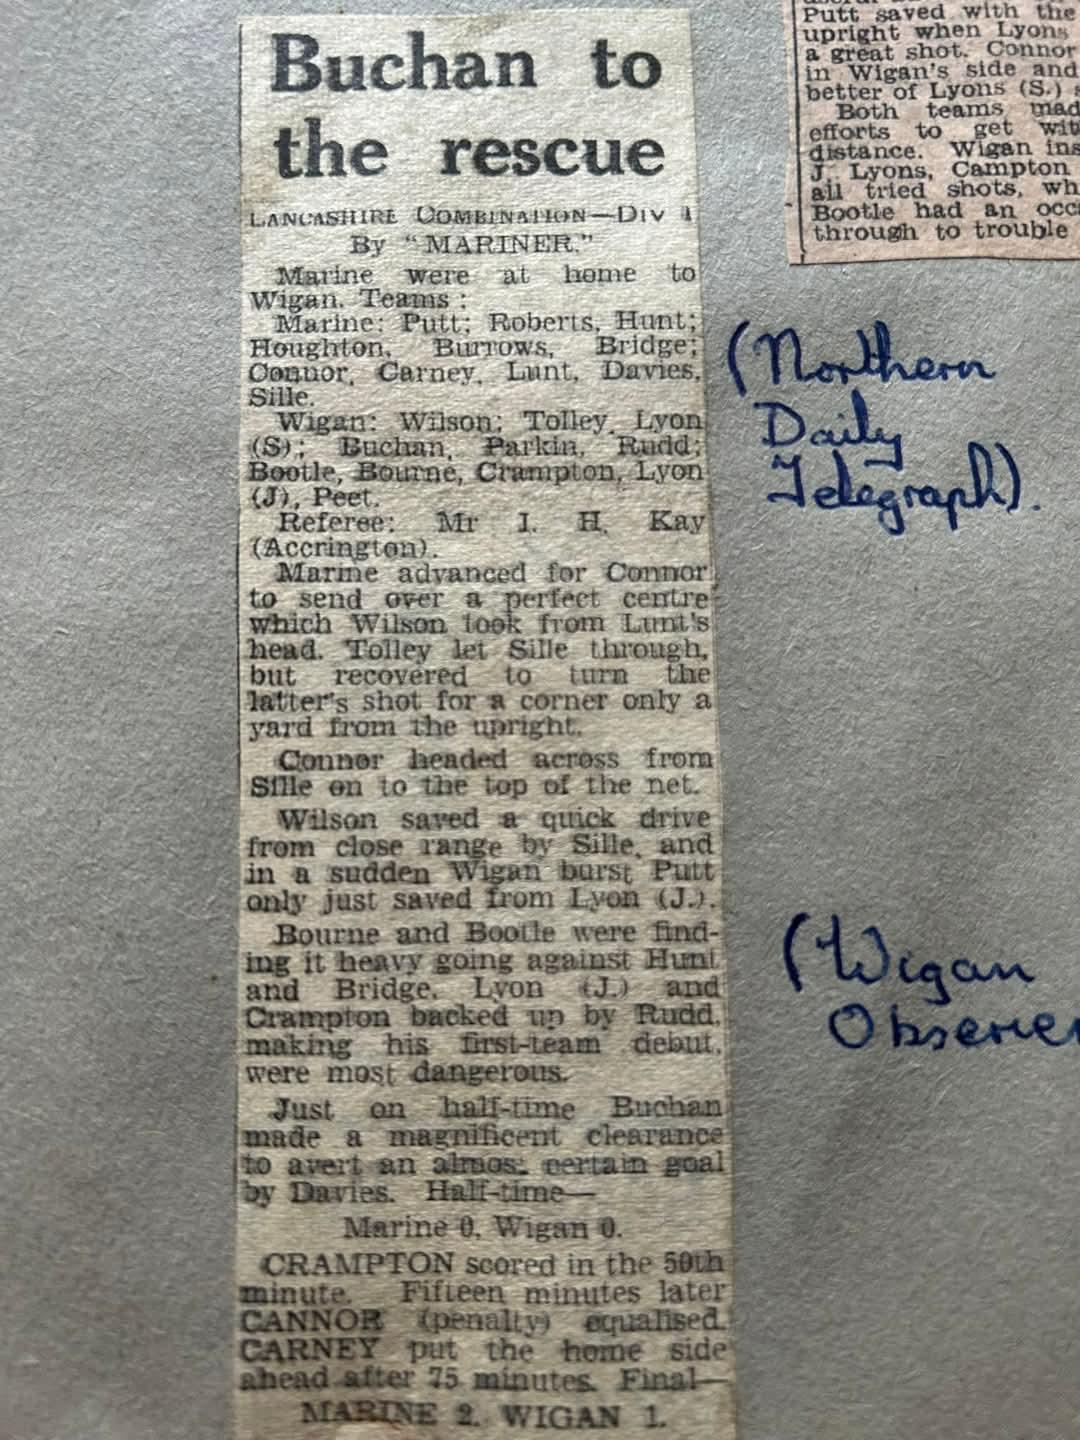 Buchan to
the rescue
LANCASHIRE COMBINATION—DIV 1
By "MARINER."
Marine were at home to
Wigan. Teams :
Marine: Putt; Roberts, Hunt;
Houghton, Burrows, Bridge;
Connor, Carney, Lunt, Davies,
Sille.
Wigan: Wilson; Tolley, Lyon
(S); Buchan, Parkin, Rudd;
Bootle, Bourne, Crampton, Lyon
(J), Peet.
Referee: Mr I. H. Kay
(Accrington).
Marine advanced for Connor
to send over a perfect centre
which Wilson took from Lunt's
head. Tolley let Sille through,
but recovered to turn the
latter's shot for a corner only a
yard from the upright.
Connor headed across from
Sille on to the top of the net.
Wilson saved a quick drive
from close range by Sille, and
in a sudden Wigan burst Putt
only just saved from Lyon (J.).
Bourne and Bootle were find-
ing it heavy going against Hunt
and Bridge. Lyon (J.) and
Crampton backed up by Rudd,
making his first-team debut,
were most dangerous.
Just on half-time Buchan
made a magnificent clearance
to avert an almost certain goal
by Davies. Half-time—
Marine 0, Wigan 0.
CRAMPTON scored in the 50th
minute. Fifteen minutes later
CANNOR (penalty) equalised.
CARNEY put the home side
ahead after 75 minutes. Final—
MARINE 2, WIGAN 1.
Putt saved with the
upright when Lyons
a great shot. Connor
in Wigan's side and
better of Lyons (S.)
Both teams mad
efforts to get wit
distance. Wigan ins
J. Lyons, Campton
all tried shots, wh
Bootle had an occ
through to trouble
(Northern
Daily
Telegraph).
(Wigan
Observer